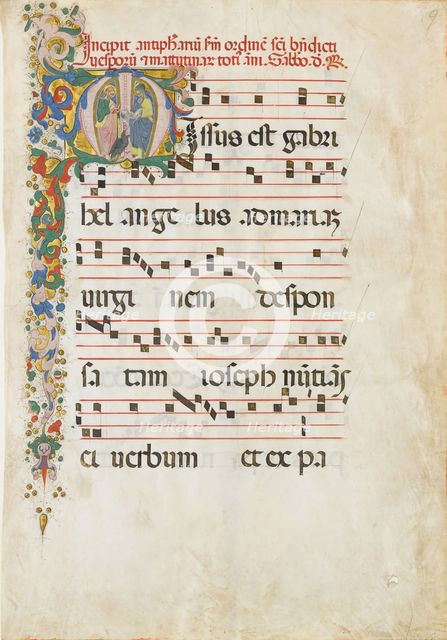 Incipit antiphariu scdm ordine sci bndicti
uesporu & matutinar toti ani. Sabbo. d. R.
Missus est gabri
hel ange lus ad mariaz
uirgi nem despon
sa tam ioseph nutias
ei uerbum et ex pa
Heritage